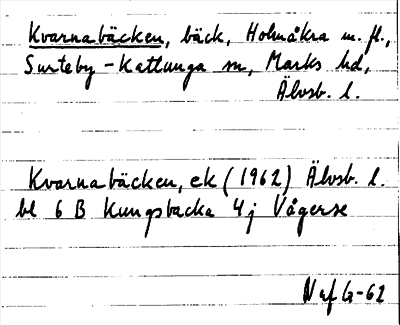 Kvarnabäcken, bäck, Holmåkra m. fl.,
Surteby-Kattunga sn, Marks hd,
Älvsb. l.
Kvarnabäcken, ek (1962) Älvsb. l.
bl 6 B Kungsbacka 4j Vågerse
Naf G-62